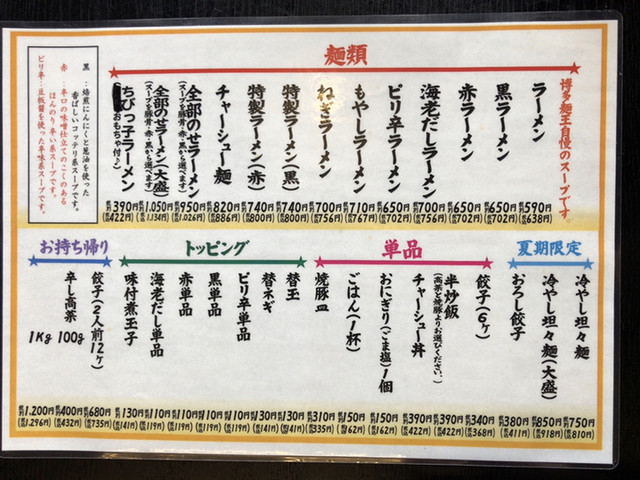 麺類
博多麺王自慢のスープです。
ラーメン 590円 (638円)
黒ラーメン 650円 (702円)
赤ラーメン 650円 (702円)
海老だしラーメン 700円 (756円)
ピリ辛ラーメン 650円 (702円)
もやしラーメン 710円 (767円)
ねぎラーメン 700円 (756円)
特製ラーメン(黒) 740円 (800円)
特製ラーメン(赤) 740円 (800円)
チャーシュー麺 820円 (886円)
全部のせラーメン 950円 (1.026円)
(スープを豚骨・赤・黒から選べます)
全部のせラーメン(大盛) 1.050円 (1.134円)
(スープを豚骨・赤・黒から選べます)
ちびっ子ラーメン 390円 (422円)
おもちゃ付♪)
黒:焙煎にんにくと葱油を使った
香ばしいコッテリ系スープです。
赤:辛口の味噌仕立てのこくのある
ほんのり辛い系スープです。
ピリ辛:豆板醤を使った辛味系スープです。
夏期限定
冷やし坦々麺 750円 (810円)
冷やし坦々麺(大盛) 850円 (918円)
おろし餃子 380円 (411円)
単品
餃子(6ヶ) 340円 (368円)
半炒飯 390円 (422円)
(高菜と焼豚よりお選びください。)
チャーシュー丼 390円 (422円)
おにぎり(ごま塩)1個 150円 (162円)
ごはん(1杯) 150円 (162円)
焼豚皿 310円 (335円)
トッピング
替玉 130円 (141円)
替ネギ 130円 (141円)
ピリ辛単品 110円 (119円)
黒単品 110円 (119円)
赤単品 110円 (119円)
海老だし単品 110円 (119円)
味付煮玉子 130円 (141円)
お持ち帰り
餃子(2人前12ヶ) 680円 (735円)
辛し高菜 100g 400円 (432円)
1Kg 1.200円 (1.296円)